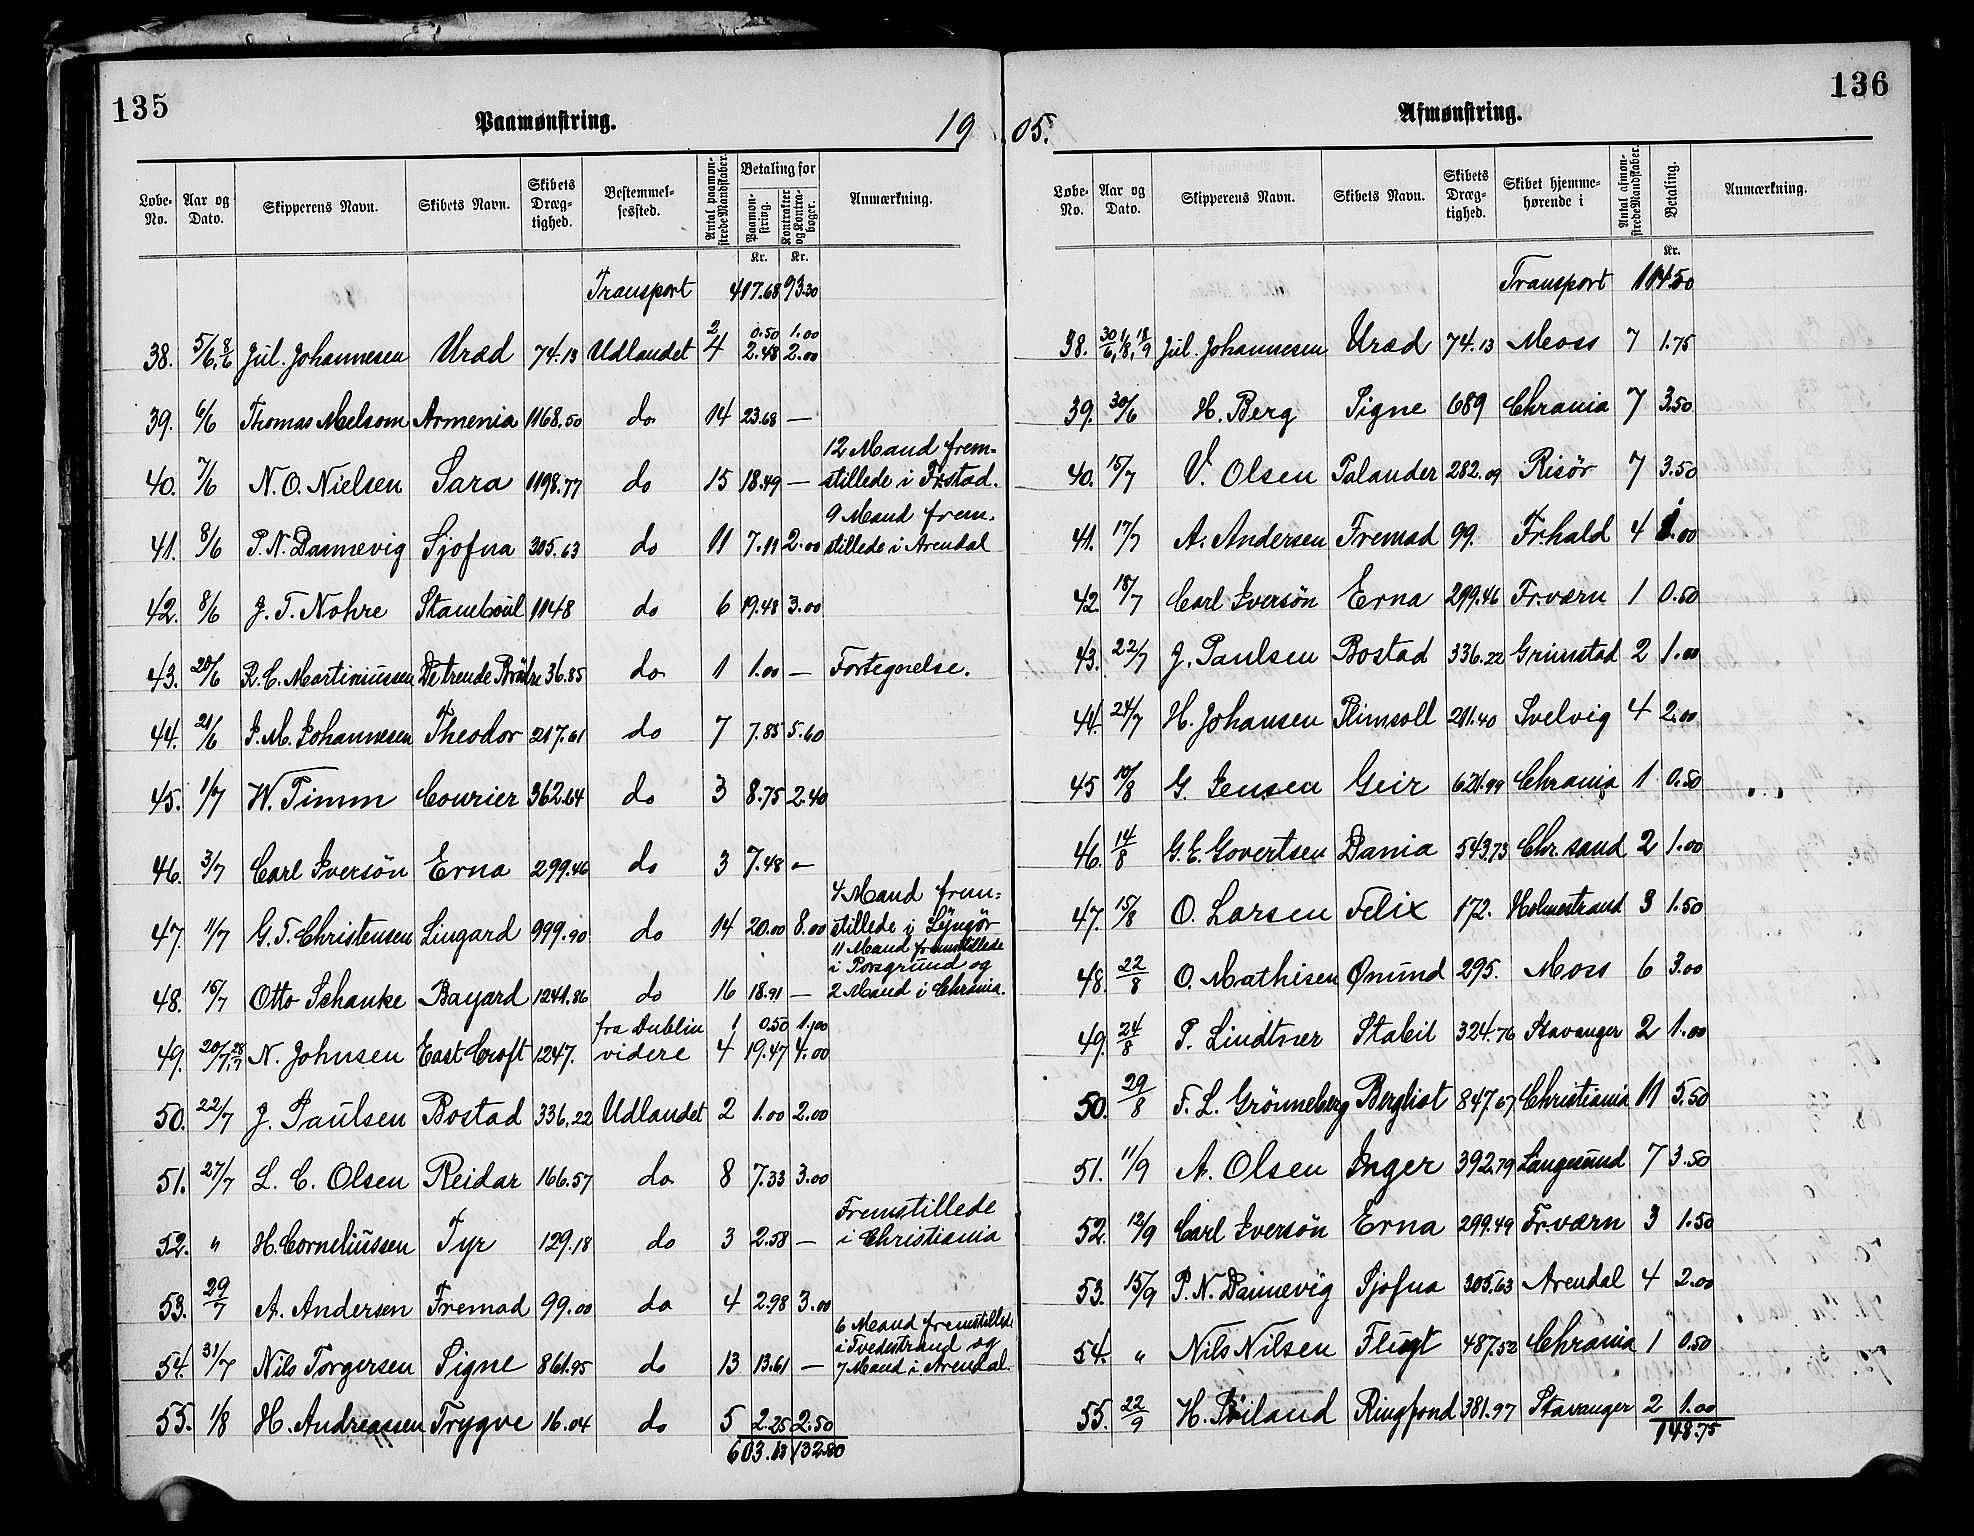 135
Paamønstring.
19
Løbe-No. Aar og Dato. Skipperens Navn. Skibets Navn. Skibets Dræg-tighed. Bestemmel-sessted. Antal paamøn-strede Mandskaber. Betaling for Paamøn-string. Kr. Kontrakter og Kontra-bøger. Kr. Anmærkning.
Transport 417.68 93.30
2 0.50 1.00
38. 5/6, 8/6 Jul. Johannesen Uræd 74.13 Udlandet 4 2.48 2.00
39. 6/6 Thomas Melsom Armenia 1168.50 do 14 23.68 —
12 Mand frem-
40. 7/6 N. O. Nielsen Sara 1198.77 do 15 18.49 — stillede i Frstad.
9 Mand frem-
41. 8/6 P. N. Dannevig Sjofna 305.63 do 11 7.11 2.00 stillede i Arendal
42. 8/6 J. T. Nohre Stamboul 1148 do 6 19.48 3.00
43. 20/6 R. C. Martiniussen De trende Brödre 36.85 do 1 1.00 — Fortegnelse.
44. 21/6 J. M. Johannesen Theodor 217.61 do 7 7.85 5.60
45. 1/7 W. Timm Courier 362.64 do 3 8.75 2.40
46. 3/7 Carl Iversön Erna 299.46 do 3 7.48 —
4 Mand frem-
47. 11/7 G. T. Christensen Lingard 999.90 do 14 20.00 8.00 stillede i Lyngör
11 Mand fremstillede
i Porsgrund og
48. 15/7 Otto Schanke Bayard 1241.86 do 16 18.91 — 2 Mand i Chrania.
fra Dublin 1 0.50 1.00
49. 20/7, 28/7 N. Johnsen East Croft 1247. videre 4 19.47 4.00
50. 22/7 J. Paulsen Bostad 336.22 Udlandet 2 1.00 2.00
51. 27/7 L. C. Olsen Reidar 166.57 do 8 7.33 3.00
Fremstillede
52. " H. Corneliussen Tyr 129.18 do 3 2.58 — i Christiania
53. 29/7 A. Andersen Fremad 99.00 do 4 2.98 3.00
6 Mand fremstillede
i Tvedestrand og
54. 31/7 Nils Torgersen Signe 861.95 do 13 13.61 — 7 Mand i Arendal.
55. 1/8 H. Andreassen Trygve 16.04 do 5 2.25 2.50
603.13 132.80
136
Afmønstring.
05.
Løbe-No. Aar og Dato. Skipperens Navn. Skibets Navn. Skibets Dræg-tighed. Skibet hjemme-hørende i Antal afmøn-strede Mandskaber. Betaling. Kr. Anmærkning.
Transport 114.50
38. 30/6, 1/8, 18/9 Jul. Johannesen Uræd 74.13 Moss 7 1.75
39. 30/6 H. Berg Signe 689 Chrania 7 3.50
40. 15/7 V. Olsen Palander 282.09 Risör 7 3.50
41. 17/7 A. Andersen Fremad 99. Frhald 4 1.00
42. 18/7 Carl Iversön Erna 299.46 Fr.værn 1 0.50
43. 22/7 J. Paulsen Bostad 336.22 Grimstad 2 1.00
44. 24/7 H. Johansen Plimsoll 211.40 Svelvig 4 2.00
45 10/8 G. Jensen Geir 621.99 Chrania 1 0.50
46. 14/8 G. E. Govertsen Dania 543.73 Chr. sand 2 1.00
47. 15/8 O. Larsen Felix 172. Holmestrand 3 1.50
48. 22/8 O. Mathisen Ønund 295. Moss 6 3.00
49. 24/8 P. Lindtner Stabil 324.76 Stavanger 2 1.00
50. 29/8 F. L. Grönneberg Bergliot 847.67 Christiania 11 5.50
51. 11/9 A. Olsen Inger 392.79 Langesund 7 3.50
52. 12/9 Carl Iversön Erna 299.49 Fr.værn 3 1.50
53. 15/9 P. N. Dannevig Sjofna 305.63 Arendal 4 2.00
54. " Nils Nilsen Flugt 487.52 Chrania 1 0.50
55. 22/9 H. Ringfond 381.97 Stavanger 2 1.00
148.75